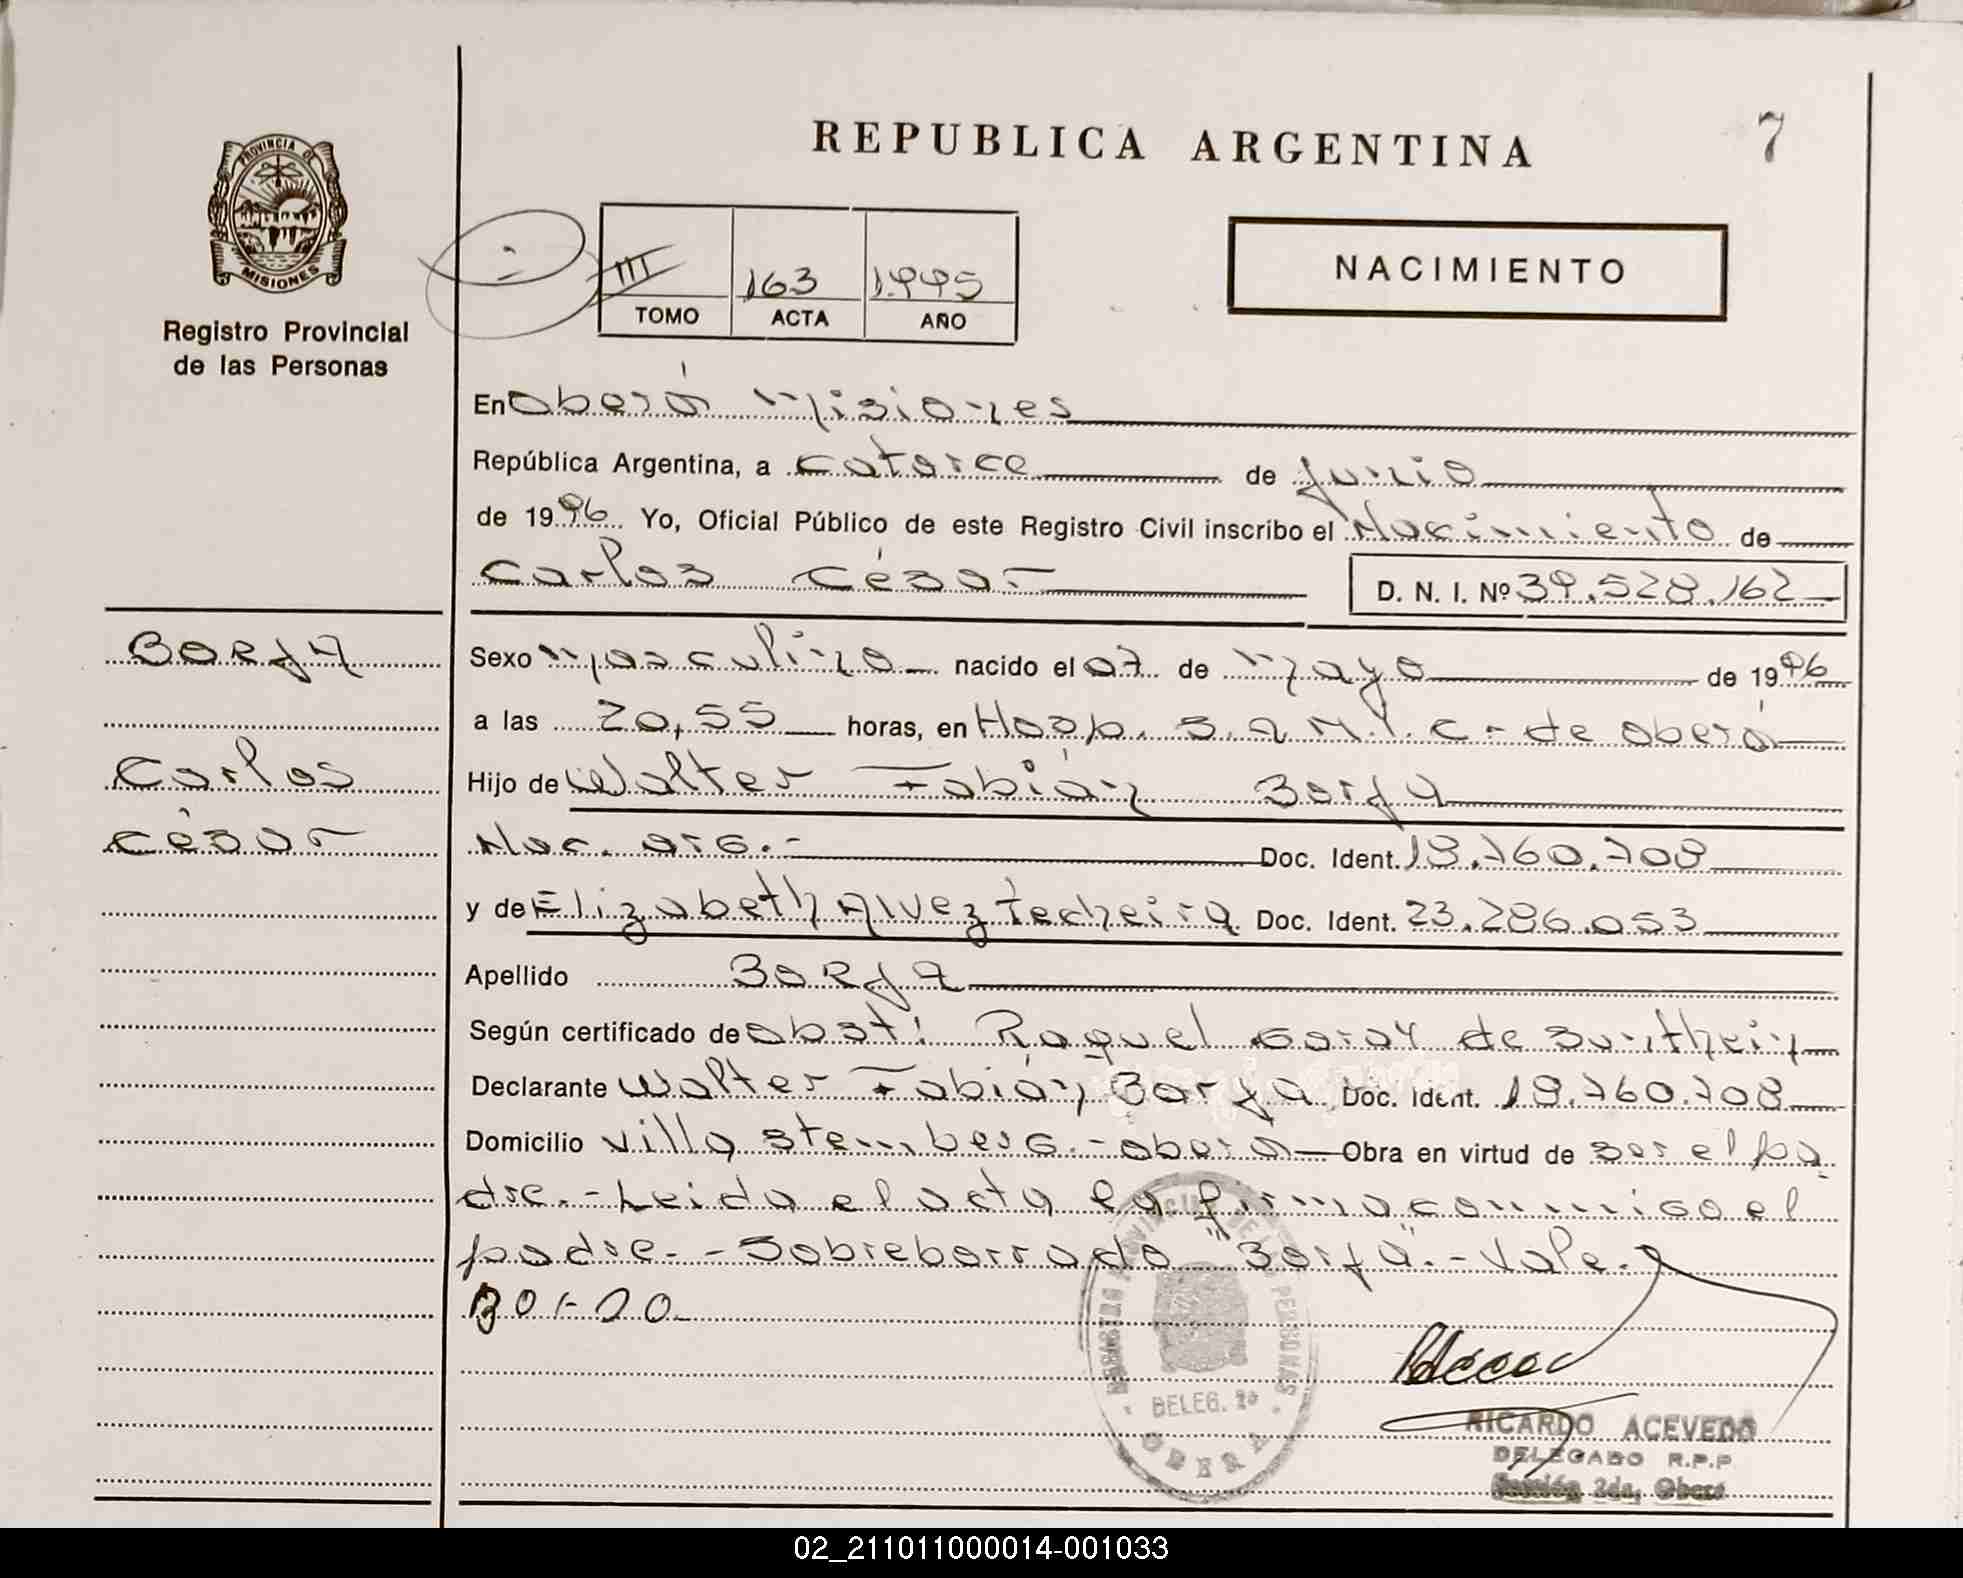 REPUBLICA ARGENTINA
7
PROVINCIA DE
MISIONES
Registro Provincial
de las Personas
III 163 1.995
TOMO ACTA AÑO
NACIMIENTO
En Oberá Misiones
República Argentina, a catorce de junio
de 1996 Yo, Oficial Público de este Registro Civil inscribo el Nacimiento de
Carlos César D. N. I. Nº 39.528.162
Borja
Carlos
César
Sexo masculino nacido el 07 de mayo de 1996
a las 20,55 horas, en Hosp. S.A.M.I.C.- de Oberá
Hijo de Walter Fabián Borja
Nac. arg.- Doc. Ident. 18.760.708
y de Elizabeth Alvez Techeira Doc. Ident. 23.286.053
Apellido Borja
Según certificado de obst: Raquel Garay de
Declarante Walter Fabián Borja Doc. Ident. 18.760.708
Domicilio Villa Stemberg.- Oberá Obra en virtud de ser el pa
dre.- Leida el acta la firma conmigo el
padre.- Sobreborrado "Borja".- Vale.
REGISTRO PROVINCIAL DE LAS PERSONAS
DELEG. 2ª
OBERA
RICARDO ACEVEDO
DELEGADO R.P.P
Sección 2da, Oberá
02_211011000014-001033